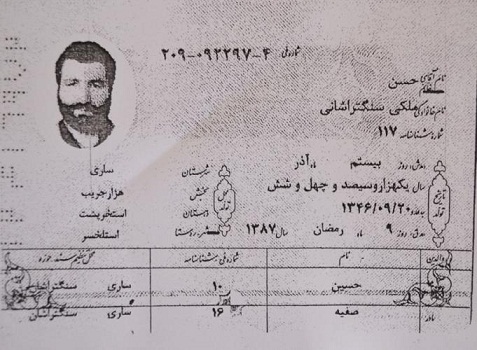 شماره ملی ۲۰۹-۰۹۲۲۹۷-۴
نام آقای حسن
خانم
نام خانوادگی ملکی سنگتراشانی
شماره شناسنامه ۱۱۷
روز بیستم ماه آذر
سال یکهزاروسیصد و چهل و شش
۱۳۴۶/۰۹/۲۰
روز ۹ ماه رمضان سال ۱۳۸۷
تاریخ تولد
محل تولد
شهرستان ساری
بخش هزارجریب
دهستان استخرپشت
شهر روستا استلخسر
والدین نام شماره ملی شناسنامه محل تنظیم سند حوزه
حسین ۱۰ ساری سنگتراشان
مادر صفیه ۱۶ ساری سنگتراشان